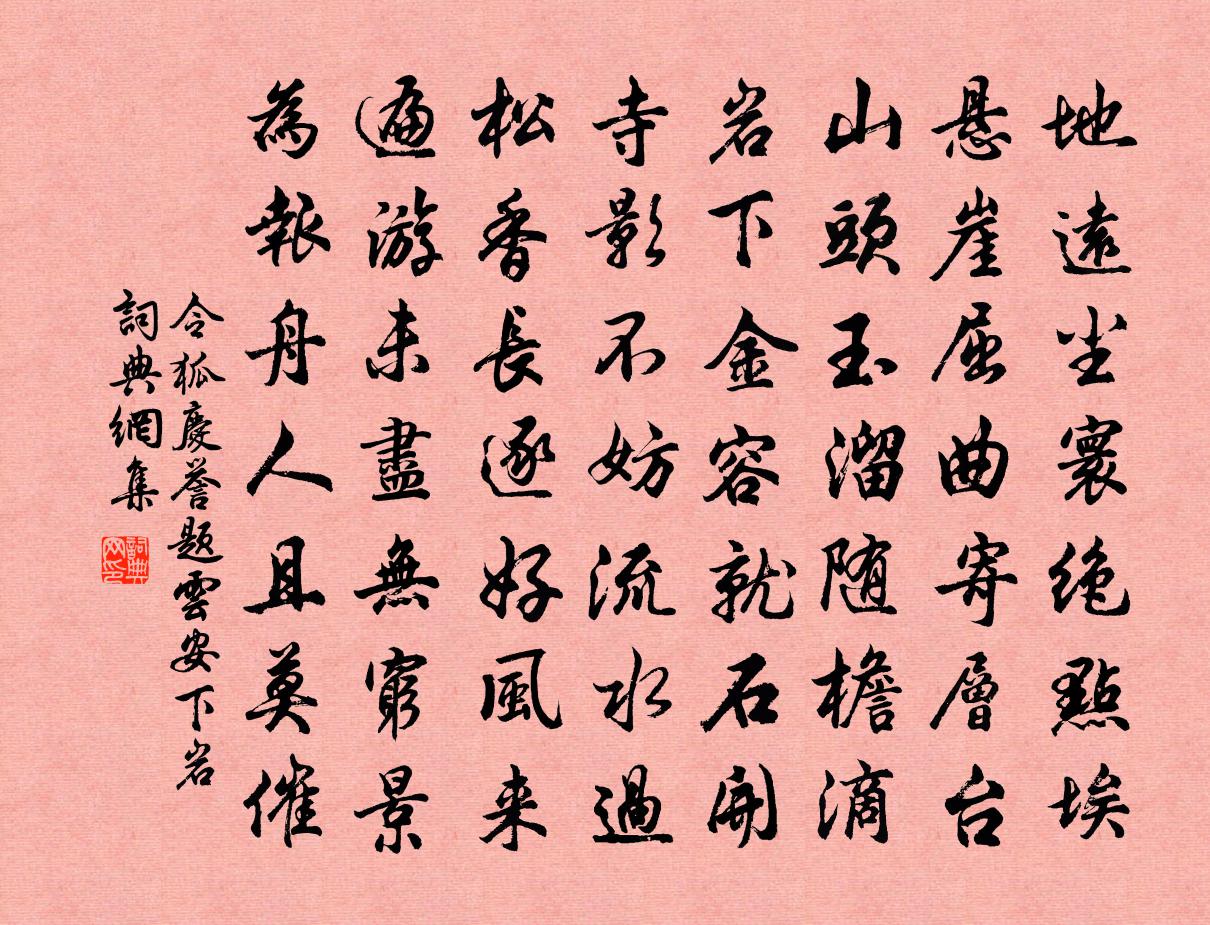 地遠尘寰绝點埃
悬崖屈曲寄層台
山頭玉溜随檐滴
岩下金容就石開
寺影不妨流水過
松香長逐好風来
遍游未盡無窮景
為報舟人且莫催
令狐慶誉题雲安下岩
詞典網集
詞典网印